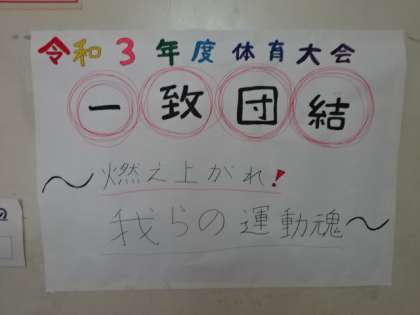 令和3年度体育大会
一致団結
〜燃え上がれ!
我らの運動魂〜